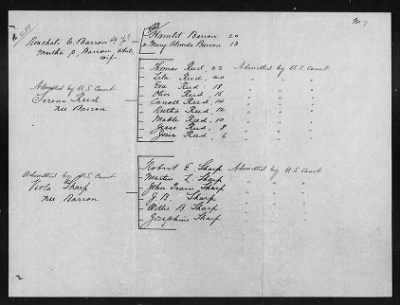 No. 7
Hamlet Barron 20
Mary Alveda Barron 18
C. Barron
Martha P. Barron, White
wife
Thomas Reed, 22 Admitted by U.S. Court
Lila Reed, 20 " " "
Eva Reed 18 " " "
Reed 16 " " "
Carroll Reed, 14 " " "
Reed 12 " " "
Mable Reed, 10 " " "
Jesse Reed, 8 " " "
Reed, 6 " " "
Admitted by U S Court
Serena Reed
nee Barron
Robert E. Sharp Admitted by U.S. Court
Martin L. Sharp " " "
John Sharp " " "
J. B. Sharp " " "
Willie B. Sharp " " "
Josephine Sharp " " "
Admitted by U.S. Court
Viola Sharp
nee Barron